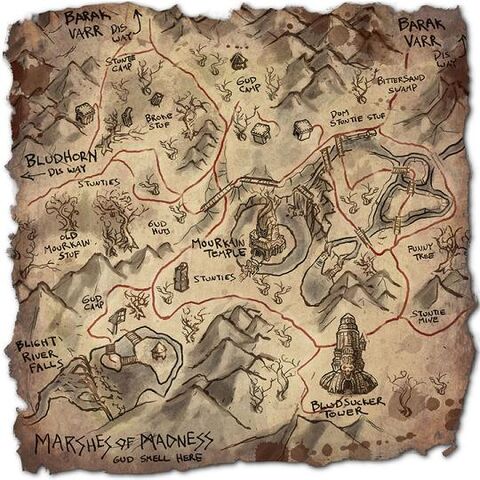 BARAK
VARR DIS
WAY
BARAK
VARR
DIS
WAY
STUNTIE
CAMP
GUD
CAMP
BITTERSAND
SWAMP
BROKE
STUF
DOM
STONTIE STUF
BLUDHORN
DIS WAY
STUNTIES
OLD
MOURKAIN
STUF
GUD
HUTS
MOURKAIN
TEMPLE
FUNNY
TREE
STUNTIES
GUD
CAMP
STUNTIE
MINE
BLIGHT
RIVER
FALLS
BLUDSUCKER
TOWER
MARSHES OF MADNESS
GUD SMELL HERE